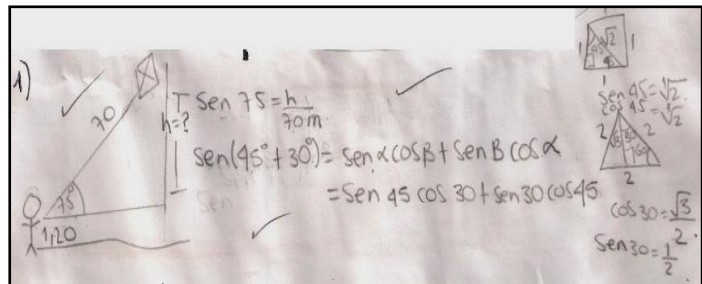 1)
70
75°
1,20
h=?
Sen 75 = h/70m
Sen(45°+30°) = Sen α cos β + Sen β cos α
= Sen 45 cos 30 + Sen 30 cos 45
1 √2 1
45
1
Sen 45 = √2
cos 45 = √2
2 √3 30 2
1 60
2
cos 30 = √3/2
Sen 30 = 1/2